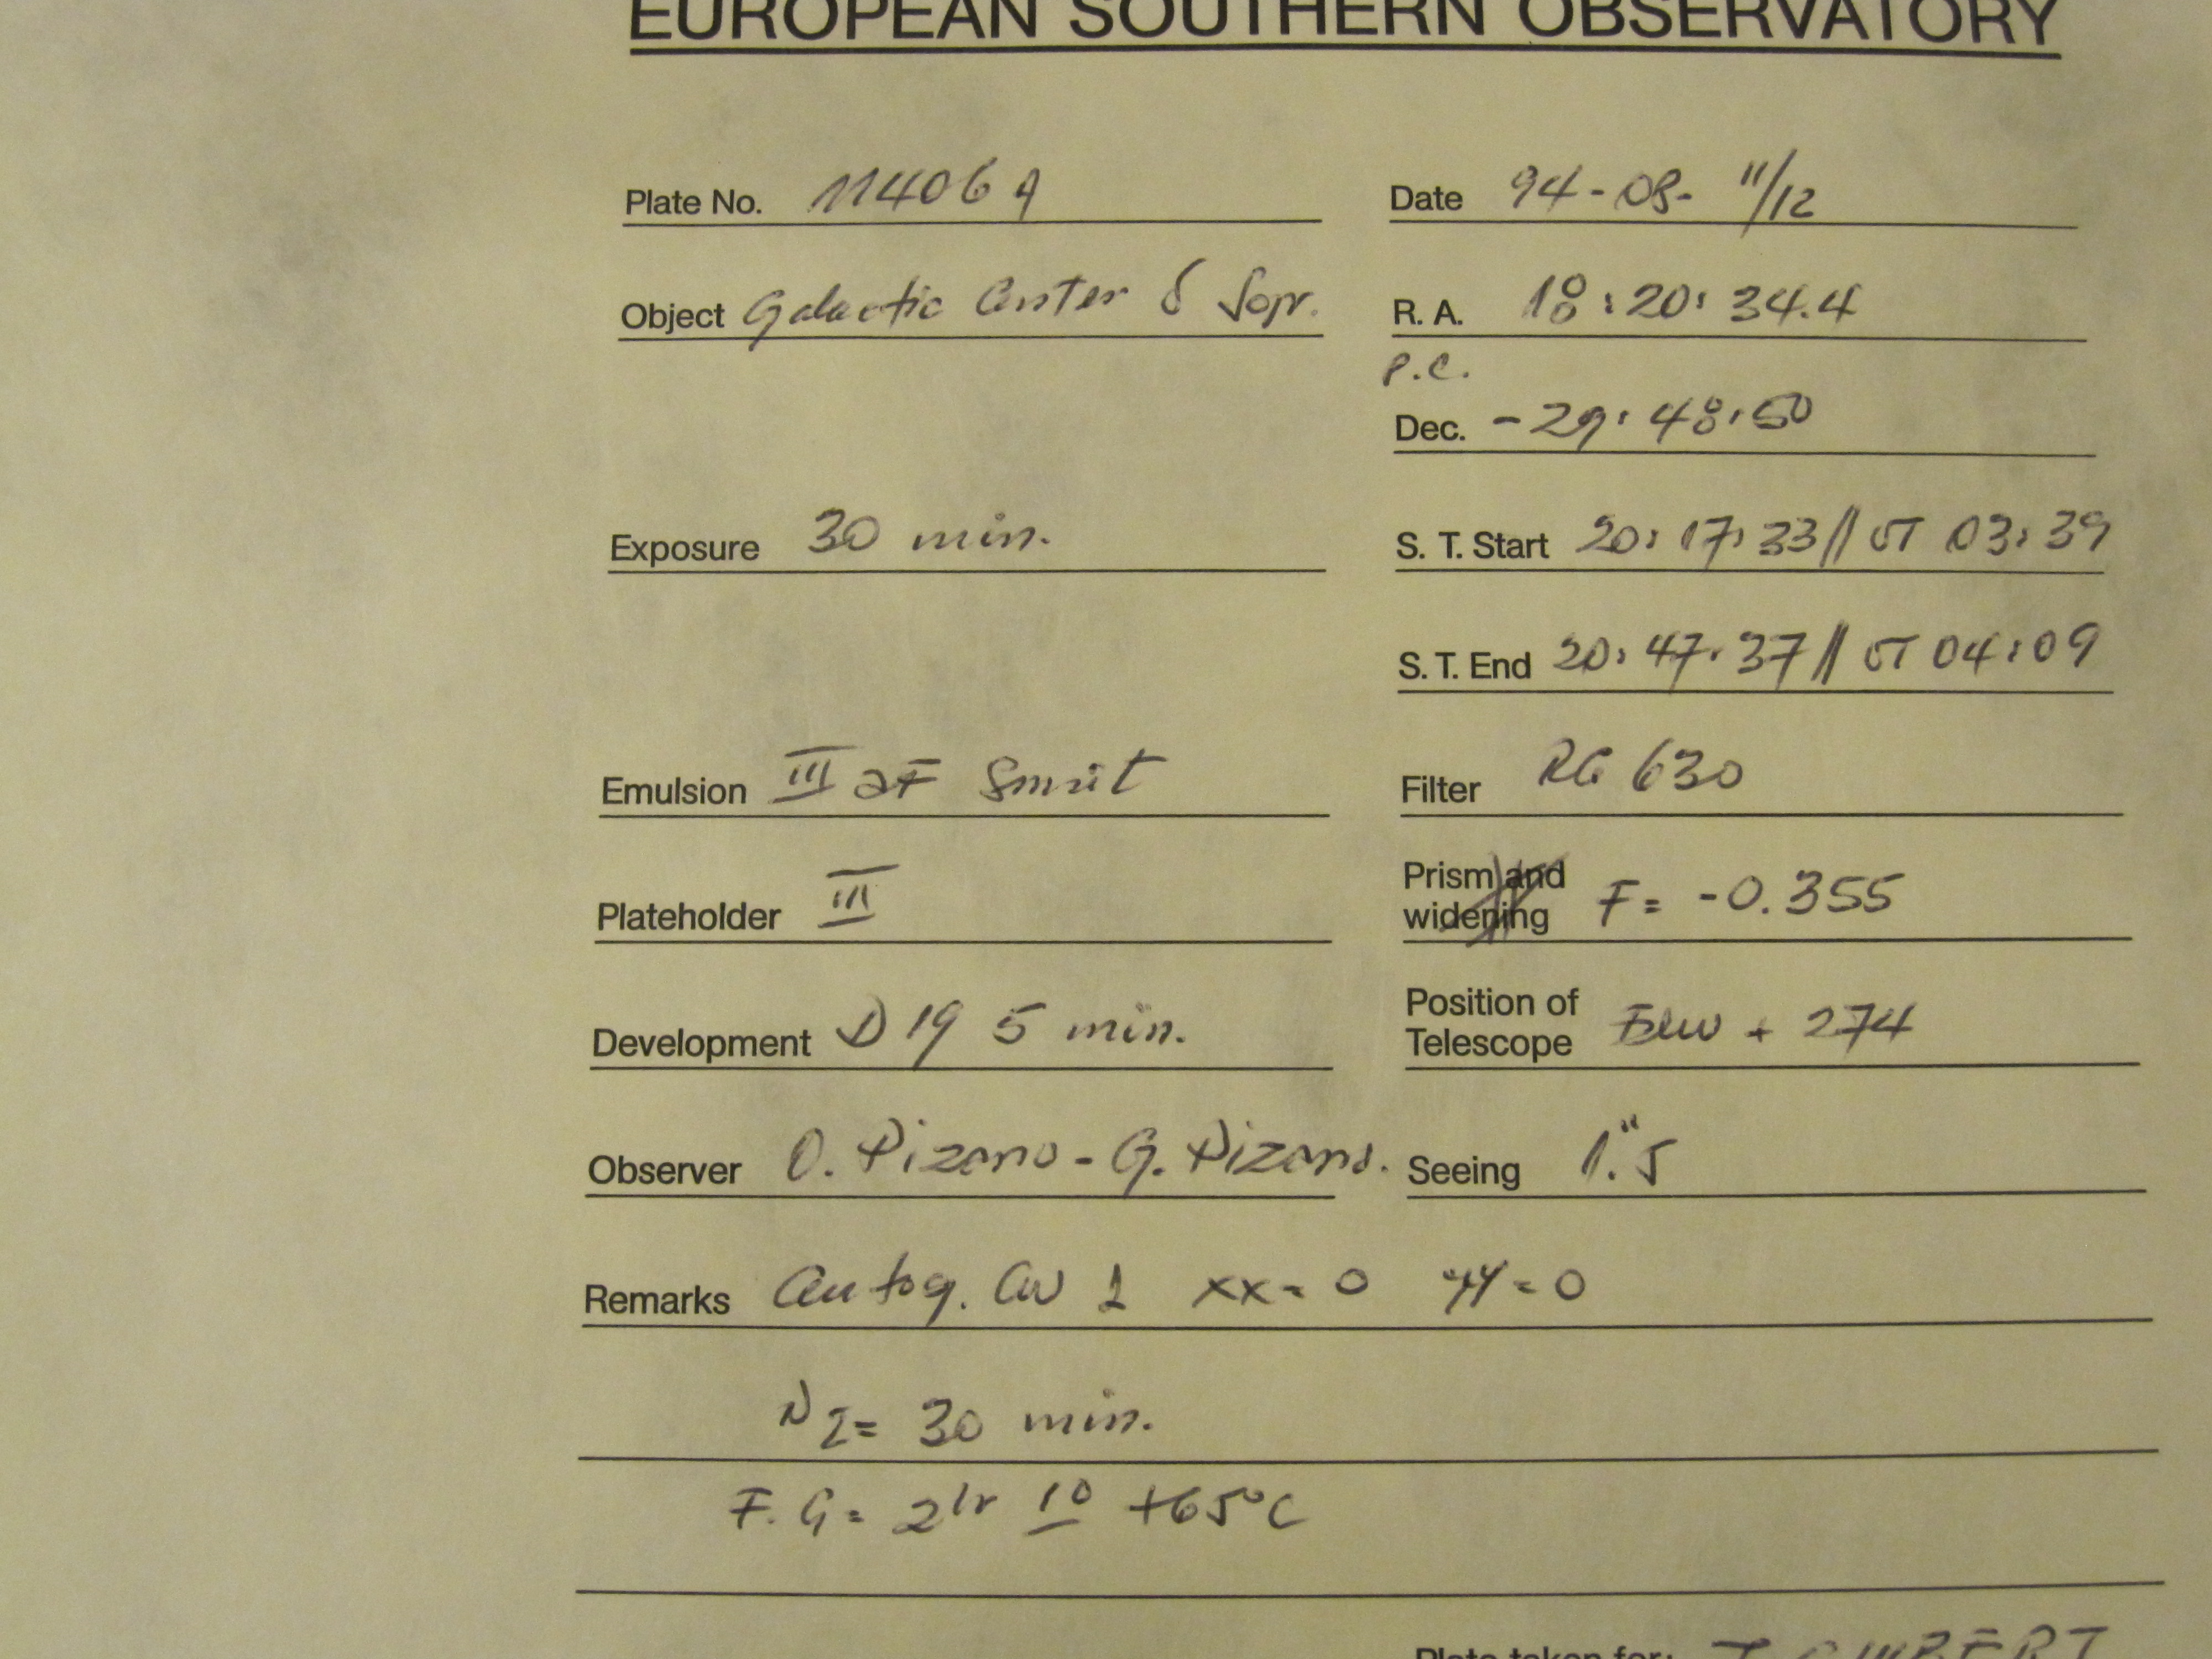 EUROPEAN SOUTHERN OBSERVATORY
Plate No. 11406 A
Date 94-08-11/12
Object Galactic Center δ
R. A. 18:20:34.4
P.C.
Dec. -29:48:50
Exposure 30 min.
S. T. Start 20:17:33 // UT 03:39
S. T. End 20:47:37 // UT 04:09
Emulsion III aF
Filter RG 630
Plateholder III
Prism and widening F= -0.355
Development D 19 5 min.
Position of Telescope + 274
Observer O. Pizarro - G. Pizarro.
Seeing 1."5
Remarks Autog. CW 1 xx=0 yy=0
N2= 30 min.
F.G= 2hr 10 +65°C
Plate taken for: